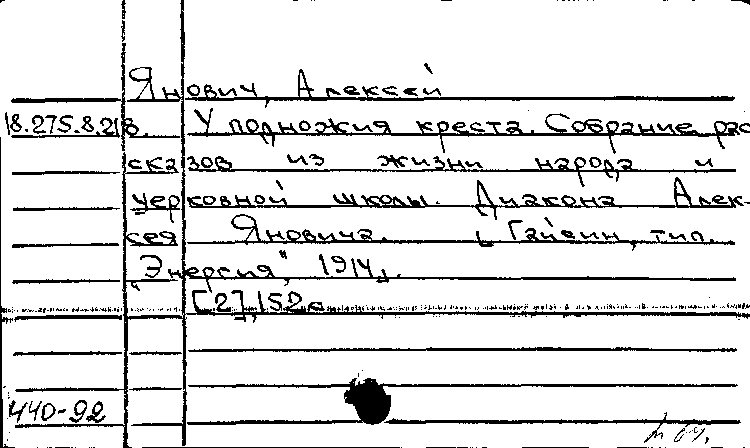 Янович, Алексей
18.275.8.218. У подножия креста. Собрание рас
сказов из жизни народа и
церковной школы. Диакона Алек-
сея Яновича. Гайсин, тип.
"Энергия", 1914.
[2], 152 с.
440-92